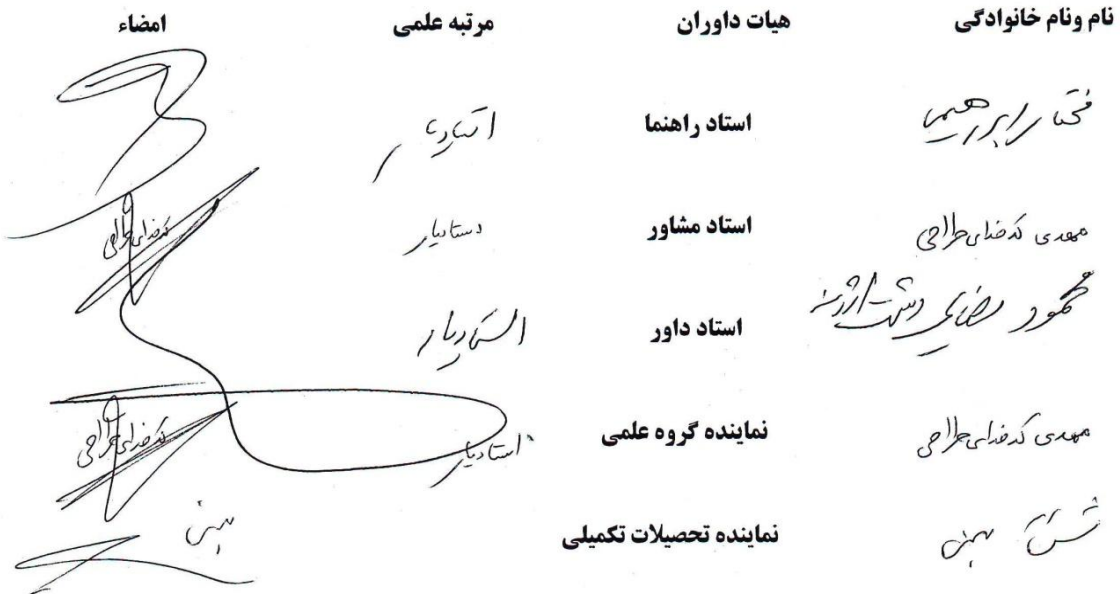 نام ونام خانوادگی هیات داوران مرتبه علمی امضاء
استاد راهنما استادیار
مهدی کدخدای طراحی استاد مشاور استادیار کدخدای طراحی
محمود رضایی دشت ارژنه استاد داور استادیار
مهدی کدخدای طراحی نماینده گروه علمی استادیار کدخدای طراحی
نماینده تحصیلات تکمیلی